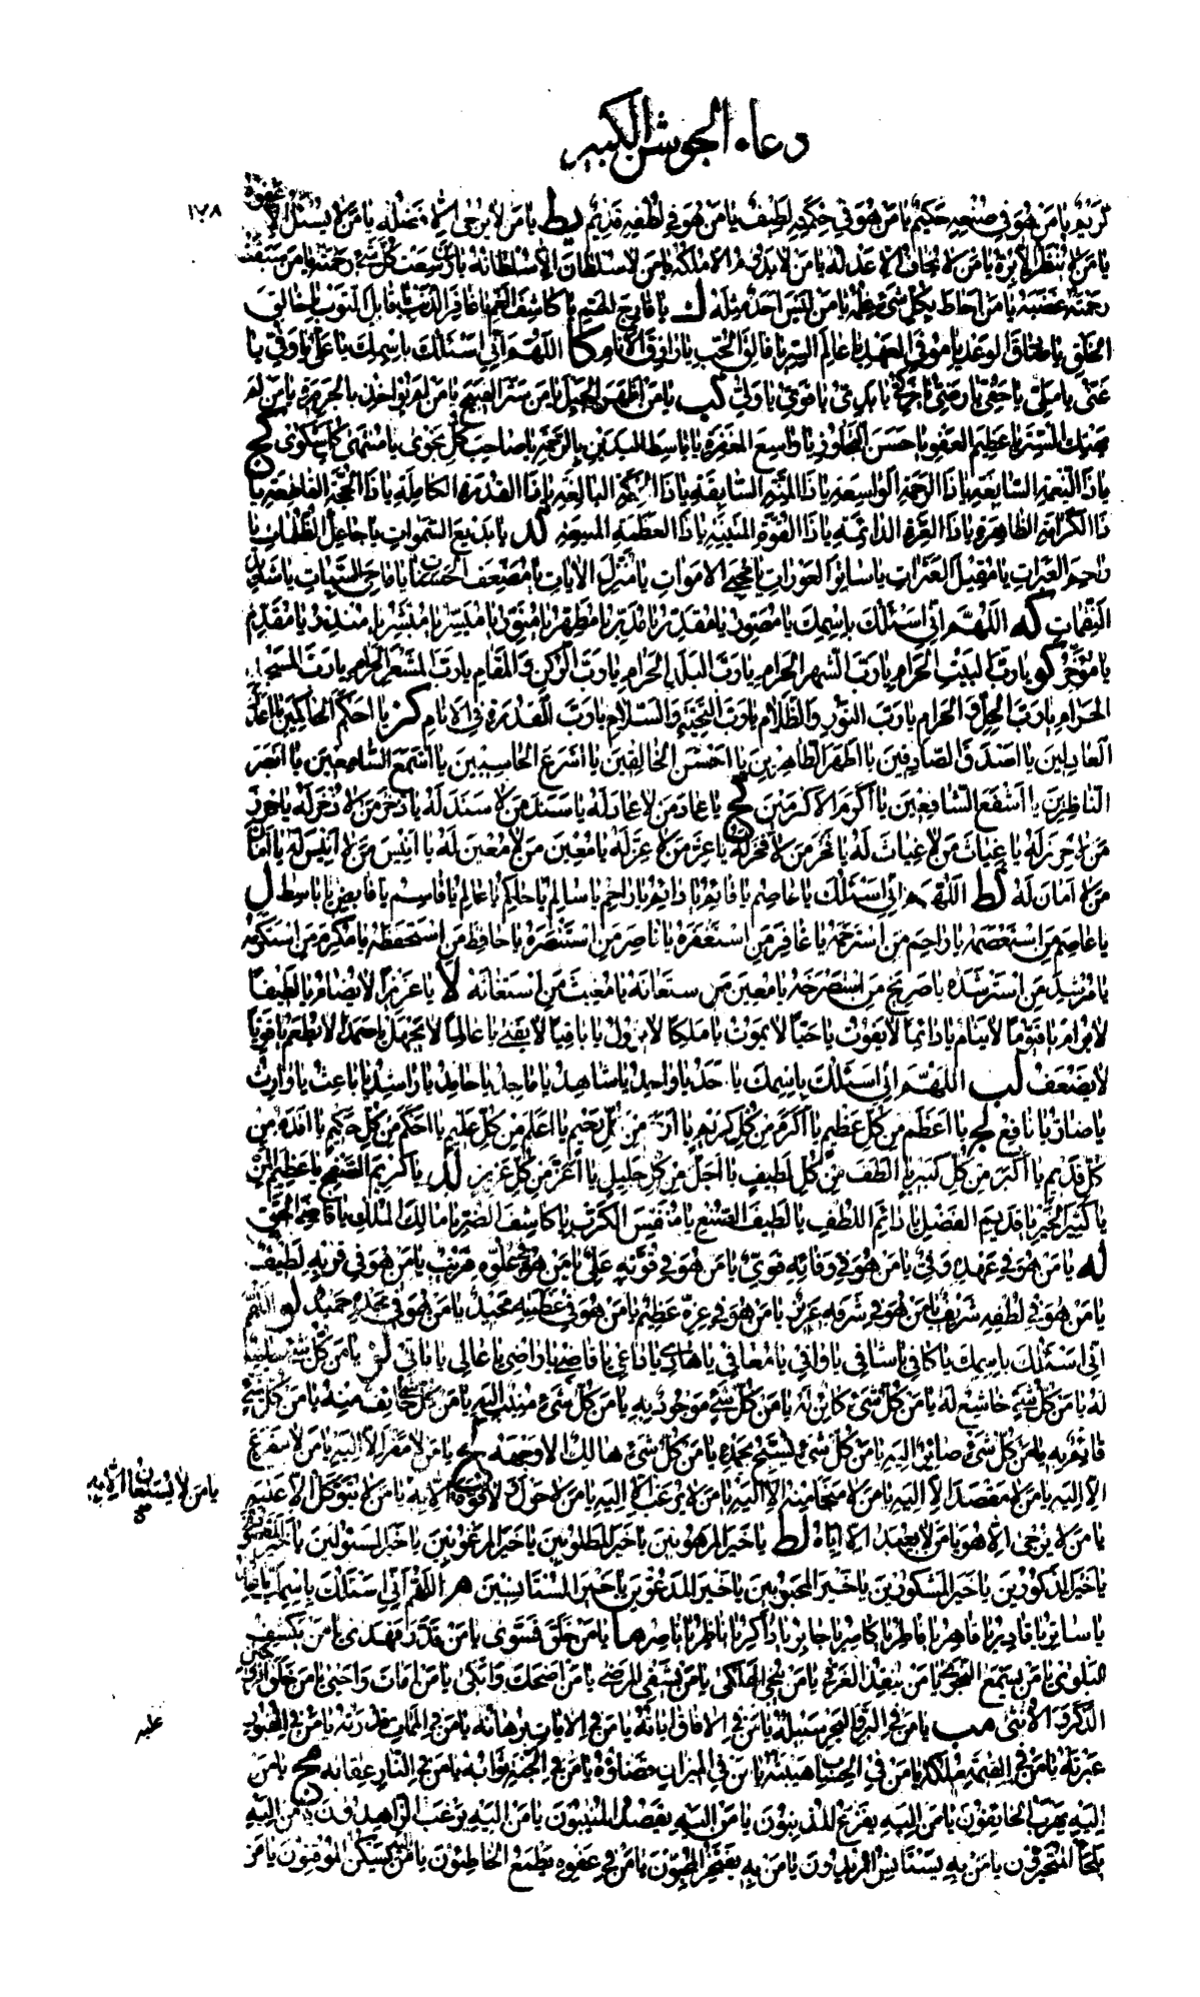 دعاء الجوشن الكبير
١٧٨
كريم يا من هو في صنعه حكيم يا من هو في حكمته لطيف يا من هو في لطفه قديم يط يا من لا يرجى الا فضله يا من لا يسئل الا عفوه
يا من لا ينظر الا بره يا من لا يخاف الا عدله يا من لا يدوم الا ملكه يا من لا سلطان الا سلطانه يا من وسعت كل شئ رحمته يا من سبقت
رحمته غضبه يا من احاط بكل شئ علمه يا من ليس احد مثله ك يا فارج الهم يا كاشف الغم يا غافر الذنب يا قابل التوب يا خالق
الخلق يا صادق الوعد يا موفي العهد يا عالم السر يا فالق الحب يا رازق الانام كا اللهم اني اسئلك باسمك يا علي يا وفي يا
غني يا ملي يا حفي يا رضي يا زكي يا بدي يا قوي يا ولي كب يا من اظهر الجميل يا من ستر القبيح يا من لم يؤاخذ بالجريرة يا من لم
يهتك الستر يا عظيم العفو يا حسن التجاوز يا واسع المغفرة يا باسط اليدين بالرحمة يا صاحب كل نجوى يا منتهى كل شكوى كج
يا ذا النعمة السابغة يا ذا الرحمة الواسعة يا ذا المنة السابقة يا ذا الحكمة البالغة يا ذا القدرة الكاملة يا ذا الحجة القاطعة يا
ذا الكرامة الظاهرة يا ذا العزة الدائمة يا ذا القوة المتينة يا ذا العظمة المنيعة كد يا بديع السموات يا جاعل الظلمات يا
راحم العبرات يا مقيل العثرات يا ساتر العورات يا محيي الاموات يا منزل الايات يا مضعف الحسنات يا ماحي السيئات يا شديد
النقمات كه اللهم اني اسئلك باسمك يا مصور يا مقدر يا مدبر يا مطهر يا منور يا ميسر يا مبشر يا منذر يا مقدم
يا مؤخر كو يا رب البيت الحرام يا رب الشهر الحرام يا رب البلد الحرام يا رب الركن والمقام يا رب المشعر الحرام يا رب المسجد
الحرام يا رب الحل والحرام يا رب النور والظلام يا رب التحية والسلام يا رب القدرة في الانام كز يا احكم الحاكمين يا اعدل
العادلين يا اصدق الصادقين يا اطهر الطاهرين يا احسن الخالقين يا اسرع الحاسبين يا اسمع السامعين يا ابصر
الناظرين يا اشفع الشافعين يا اكرم الاكرمين كح يا عماد من لا عماد له يا سند من لا سند له يا ذخر من لا ذخر له يا حرز
من لا حرز له يا غياث من لا غياث له يا فخر من لا فخر له يا عز من لا عز له يا معين من لا معين له يا انيس من لا انيس له يا امان
من لا امان له كط اللهم اني اسئلك يا عاصم يا قائم يا دائم يا راحم يا سالم يا حاكم يا عالم يا قاسم يا قابض يا باسط ل
يا عاصم من استعصمه يا راحم من استرحمه يا غافر من استغفره يا ناصر من استنصره يا حافظ من استحفظه يا مكرم من استكرمه
يا مرشد من استرشده يا صريخ من استصرخه يا معين من ستعانه يا مغيث من استغاثه لا يا عزيزا لا يضام يا لطيفا
لا يرام يا قيوما لا ينام يا دائما لا يفوت يا حيا لا يموت يا ملكا لا يزول يا باقيا لا يفنى يا عالما لا يجهل يا صمدا لا يطعم يا قويا
لا يضعف لب اللهم اني اسئلك باسمك يا احد يا واحد يا شاهد يا ماجد يا حامد يا راشد يا باعث يا وارث
يا ضار يا نافع لج يا اعظم من كل عظيم يا اكرم من كل كريم يا ارحم من كل رحيم يا اعلم من كل عليم يا احكم من كل حكيم يا اقدم من
كل قديم يا اكبر من كل كبير يا الطف من كل لطيف يا اجل من كل جليل يا اعز من كل عزيز لد يا كريم الصفح يا عظيم المن
يا كثير الخير يا قديم الفضل يا دائم اللطف يا لطيف الصنع يا منفس الكرب يا كاشف الضر يا مالك الملك يا قاضي الحق
له يا من هو في عهده وفي يا من هو في وفائه قوي يا من هو في قوته علي يا من هو في علوه قريب يا من هو في قربه لطيف
يا من هو في لطفه شريف يا من هو في شرفه عزيز يا من هو في عزه عظيم يا من هو في عظمته مجيد يا من هو في مجده حميد لو اللهم
اني اسئلك باسمك يا كافي يا شافي يا وافي يا معافي يا هادي يا داعي يا قاضي يا راضي يا عالي يا باقي لز يا من كل شئ
له يا من كل شئ خاشع له يا من كل شئ كائن له يا من كل شئ موجود به يا من كل شئ منيب اليه يا من كل شئ خائف منه يا من كل شئ
قائم به يا من كل شئ صائر اليه يا من كل شئ يسبح بحمده يا من كل شئ هالك الا وجهه لح يا من لا مفر الا اليه يا من لا مفزع
الا اليه يا من لا مقصد الا اليه يا من لا منجا منه الا اليه يا من لا يرغب الا اليه يا من لا حول ولا قوة الا به يا من لا يتوكل الا عليه
يا من لا يستعان الا به
يا من لا يرجى الا هو يا من لا يعبد الا اياه لط يا خير المرهوبين يا خير المطلوبين يا خير المرغوبين يا خير المسئولين يا خير المقصودين
يا خير المذكورين يا خير المشكورين يا خير المحبوبين يا خير المدعوين يا خير المستانسين م اللهم اني اسئلك باسمك يا غافر
يا ساتر يا قادر يا قاهر يا فاطر يا كاسر يا جابر يا ذاكر يا ناظر يا ناصر ما يا من خلق فسوى يا من قدر فهدى يا من يكشف
البلوى يا من يسمع النجوى يا من ينقذ الغرقى يا من ينجي الهلكى يا من يشفي المرضى يا من اضحك وابكى يا من امات واحيى يا من خلق الزوجين
الذكر والانثى مب يا من في البر والبحر سبيله يا من في الافاق اياته يا من في الايات برهانه يا من في الممات قدرته يا من في القبور
عبرته يا من في القيمة ملكه يا من في الحساب هيبته يا من في الميزان قضاؤه يا من في الجنة ثوابه يا من في النار عقابه مج يا من
اليه يهرب الخائفون يا من اليه يفزع المذنبون يا من اليه يقصد المنيبون يا من اليه يرغب الزاهدون يا من اليه
يلجأ المتحيرون يا من به يستانس المريدون يا من به يفتخر المحبون يا من في عفوه يطمع الخاطئون يا من اليه يسكن الموقنون يا من